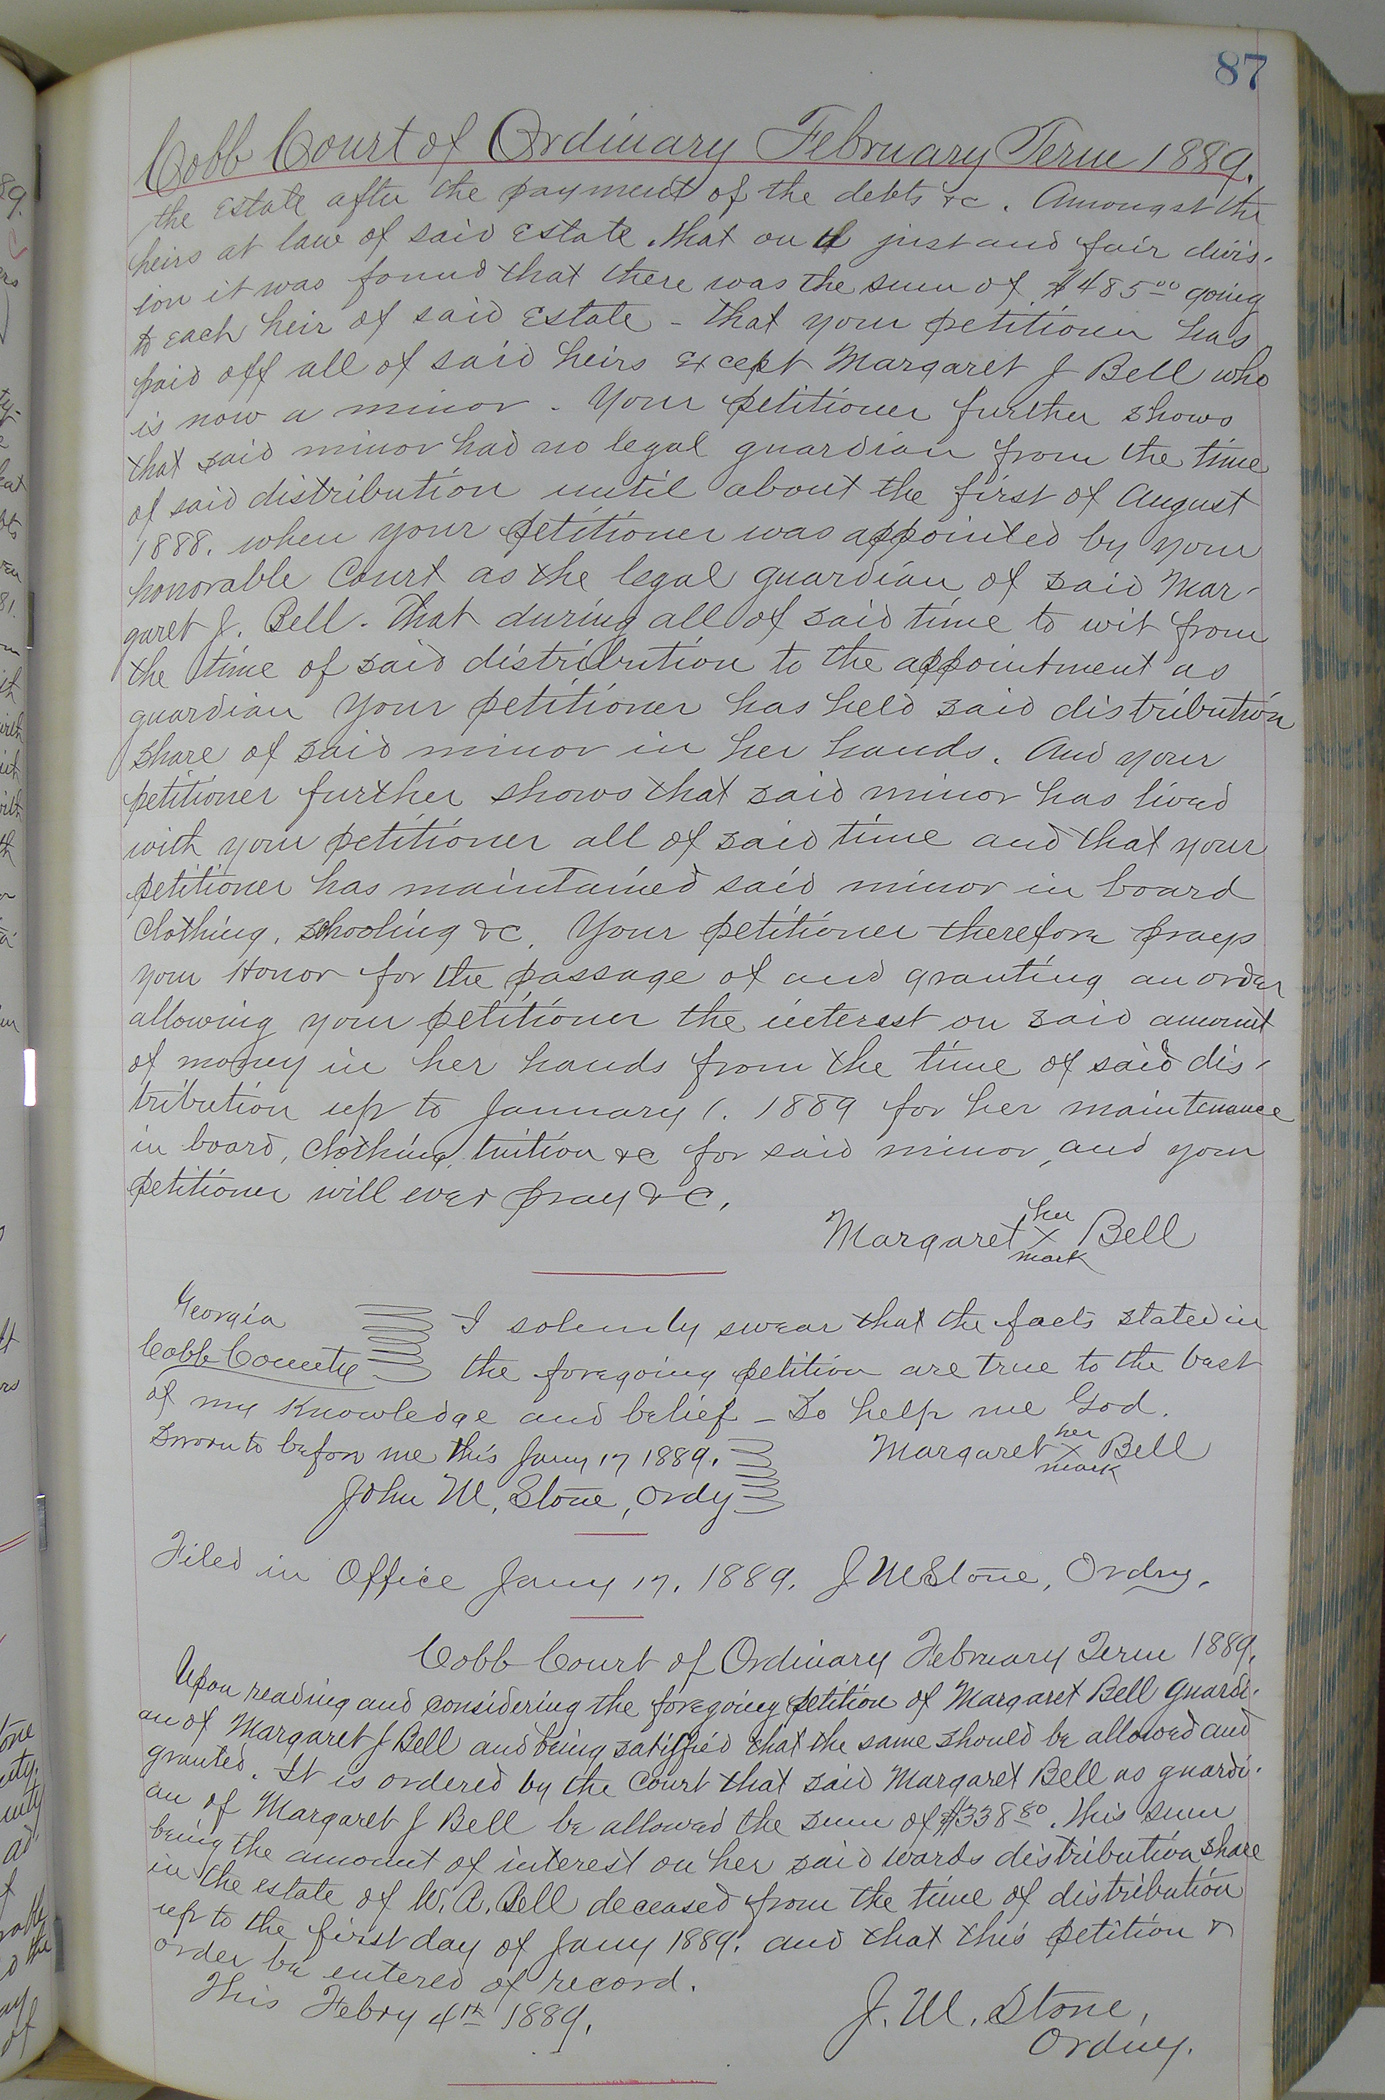 87
Cobb Court of Ordinary February Term 1889.
the Estate after the payment of the debts &c. Amongst the
heirs at law of said Estate. that on a just and fair divis-
ion it was found that there was the sum of $485.00 going
to each heir of said Estate - that your petitioner has
paid off all of said heirs except Margaret J Bell who
is now a minor. Your petitioner further shows
that said minor had no legal guardian from the time
of said distribution until about the first of August
1888. when your petitioner was appointed by your
honorable Court as the legal guardian of said Mar-
garet J. Bell. That during all of said time to wit from
the time of said distribution to the appointment as
guardian your petitioner has held said distribution
share of said minor in her hands. And your
petitioner further shows that said minor has lived
with your petitioner all of said time and that your
petitioner has maintained said minor in board
clothing, schooling &c. Your petitioner therefore prays
your Honor for the passage of and granting an order
allowing your petitioner the interest on said amount
of money in her hands from the time of said dis-
tribution up to January 1. 1889 for her maintenance
in board, clothing, tuition &c for said minor, and your
petitioner will ever pray &c.
her
Margaret X Bell
mark
Georgia I solemnly swear that the facts stated in
Cobb County the foregoing petition are true to the best
of my knowledge and belief - So help me God.
Sworn to before me this Jany 17 1889. Margaret her X mark Bell
John W. Stone, Ordy
Filed in Office Jany 17, 1889. J W Stone, Ordny.
Cobb Court of Ordinary February Term 1889.
Upon reading and considering the foregoing petition of Margaret Bell Guardi-
an of Margaret J Bell and being satisfied that the same should be allowed and
granted. It is ordered by the Court that said Margaret Bell as guardi-
an of Margaret J Bell be allowed the sum of $338.80. this sum
being the amount of interest on her said wards distribution share
in the estate of W. A. Bell deceased from the time of distribution
up to the first day of Jany 1889. and that this petition &
order be entered of record.
This Febry 4th 1889.
J. W. Stone,
Ordny.